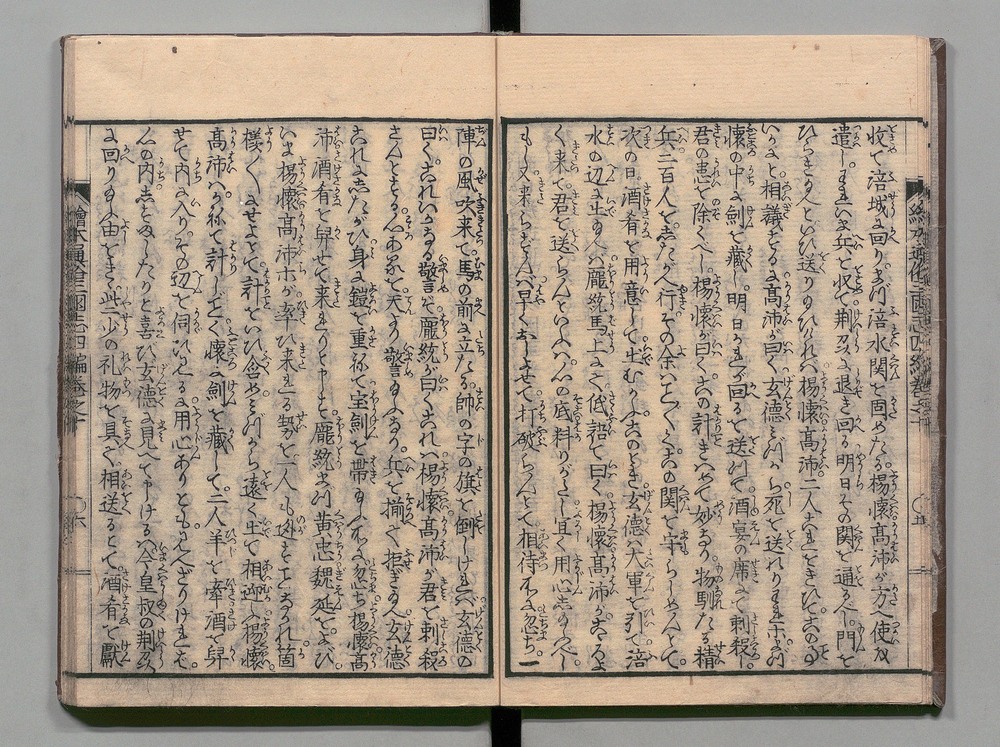 収て涪城に回り。まづ涪水関を固めたる。楊懐高沛が方へ使を
遣し。われいま兵を収て荆州に退き回る。明日その関を通るべし。門を
ひらき給へといひ送りければ。楊懐高沛二人これをきひて。この
いかにと相議する。高沛が曰く玄徳みづから死を送れり。われ等
懐の中に剣を藏し。明日かれが回るを送りて。酒宴の席にて刺殺し。
君の患を除くべし。楊懐が曰く此の計きはめて妙なり。物馴たる精
兵二百人をしたがへ行。その余はことごとくこの関を守らしめんとて。
次の日酒肴を用意して出むかふ。このとき玄徳は大軍を引て涪
水の辺に出給へば。龐統馬上にて低語て曰く。楊懐高沛がこゝろよ
く来て。君を送らんといふは。心の底料りがたし。宜く用心し給ふべし。
もし又来らずんば。早くおしよせて。打破らんとて相待ところに。忽ち一
陣の風吹来て。馬の前に立たる。帥の字の旗を倒しければ。玄徳の
曰く。これはいかなる警ぞ。龐統が曰く。これは楊懐高沛が君を刺殺
さんとする心あるを。天より警るなり。兵に揃て拒ぎ給へ。玄徳
これにしたがひ。身に鎧を重ねて宝剣を帯給ふところに。忽ち楊懐高
沛酒肴を舁せて来れりと申す。龐統まづ黄忠魏延をよび
いま楊懐高沛等が率ひ来れる勢を一人も逃すことなかれと。箇
樣〳〵にせよとて。計をいひ含め。みづから遠く出て相迎ふ。楊懐
高沛はかねて計しごとく。懐に剣を藏して。二人羊を牽酒を舁
せて内に入り。その辺を伺ひみるに。用心ありとも見へざりければ。
心の内しすましたりと喜び。玄徳に見へて申しけるは。今皇叔の荆州
に回り給ふ由をきく。些少の礼物を具て。相送るとて。酒肴を獻
繪本通俗三國志四編巻之一 五
繪本通俗三國志四編巻之一 六